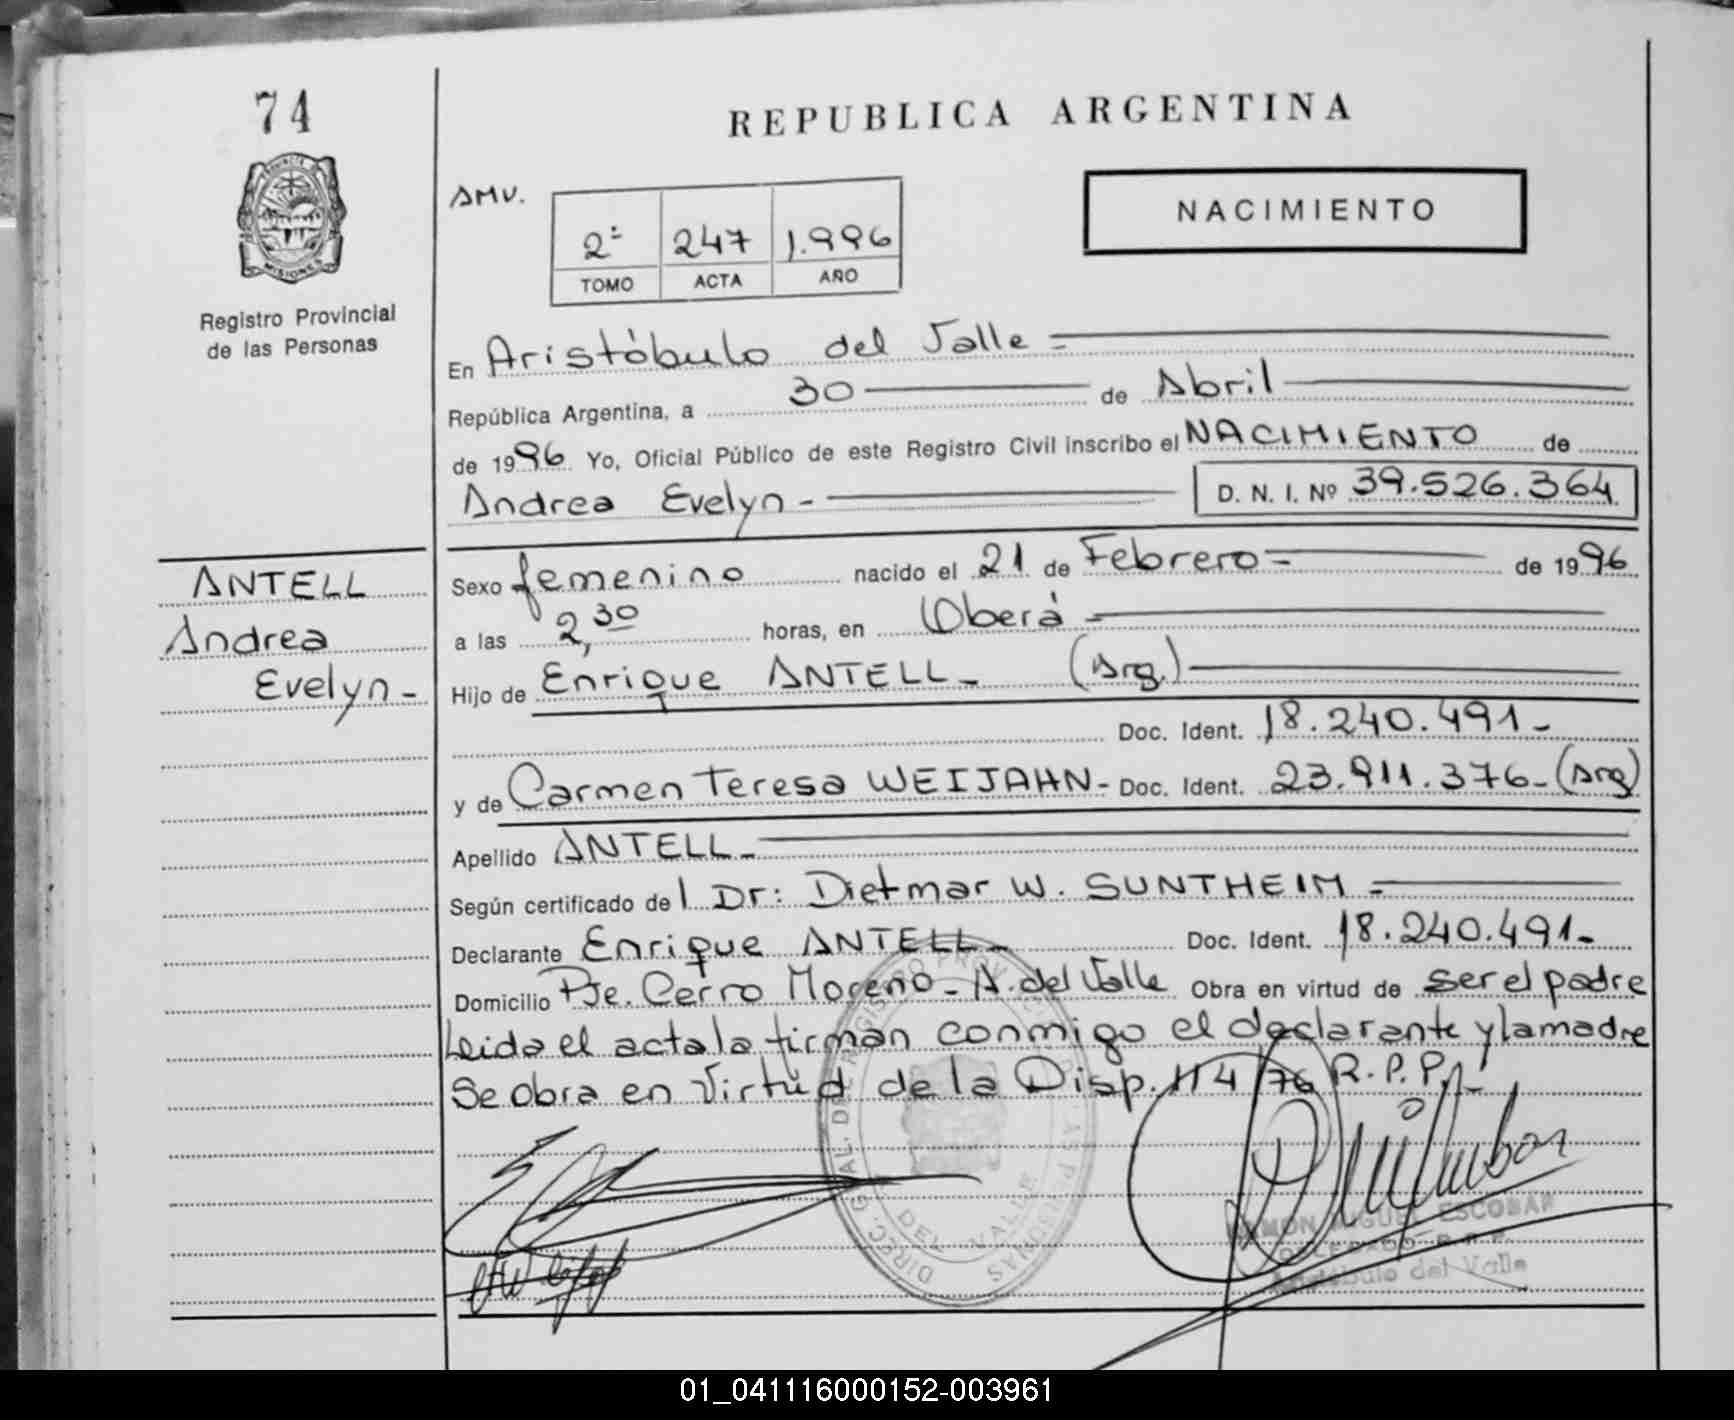 74
REPUBLICA ARGENTINA
PROVINCIA
MISIONES
AMV.
NACIMIENTO
2º 247 1.996
TOMO ACTA AÑO
Registro Provincial
de las Personas
En Aristóbulo del Valle
República Argentina, a 30 de Abril
de 1996 Yo, Oficial Público de este Registro Civil inscribo el NACIMIENTO de
Andrea Evelyn - D. N. I. Nº 39.526.364
ANTELL
Andrea
Evelyn -
Sexo femenino nacido el 21 de Febrero - de 1996
a las 2,30 horas, en Oberá
Hijo de Enrique ANTELL - (Arg.)
Doc. Ident. 18.240.491 -
y de Carmen Teresa WEIJAHN - Doc. Ident. 23.911.376 - (Arg)
Apellido ANTELL -
Según certificado del Dr: Dietmar W. SUNTHEIM -
Declarante Enrique ANTELL - Doc. Ident. 18.240.491 -
Domicilio Pje. Cerro Moreno - A. del Valle Obra en virtud de ser el padre
Leida el acta la firman conmigo el declarante y la madre
Se obra en Virtud de la Disp. 114/76 R.P.P. -
DIREC. GRAL. DEL REGISTRO PROVINCIAL DE LAS PERSONAS
DEL VALLE
RAMON MIGUEL ESCOBAR
DELEGADO R.P.P.
Aristóbulo del Valle
01_041116000152-003961